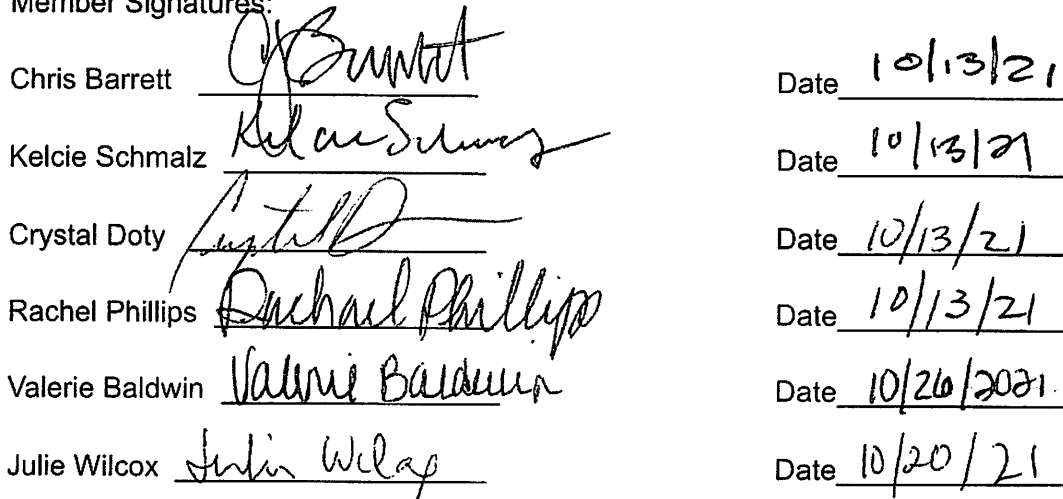 Member Signatures:
Chris Barrett CJ Barrett Date 10/13/21
Kelcie Schmalz Kelcie Schmalz Date 10/13/21
Crystal Doty Crystal D Date 10/13/21
Rachel Phillips Rachael Phillips Date 10/13/21
Valerie Baldwin Valerie Baldwin Date 10/26/2021
Julie Wilcox Julie Wilcox Date 10/20/21